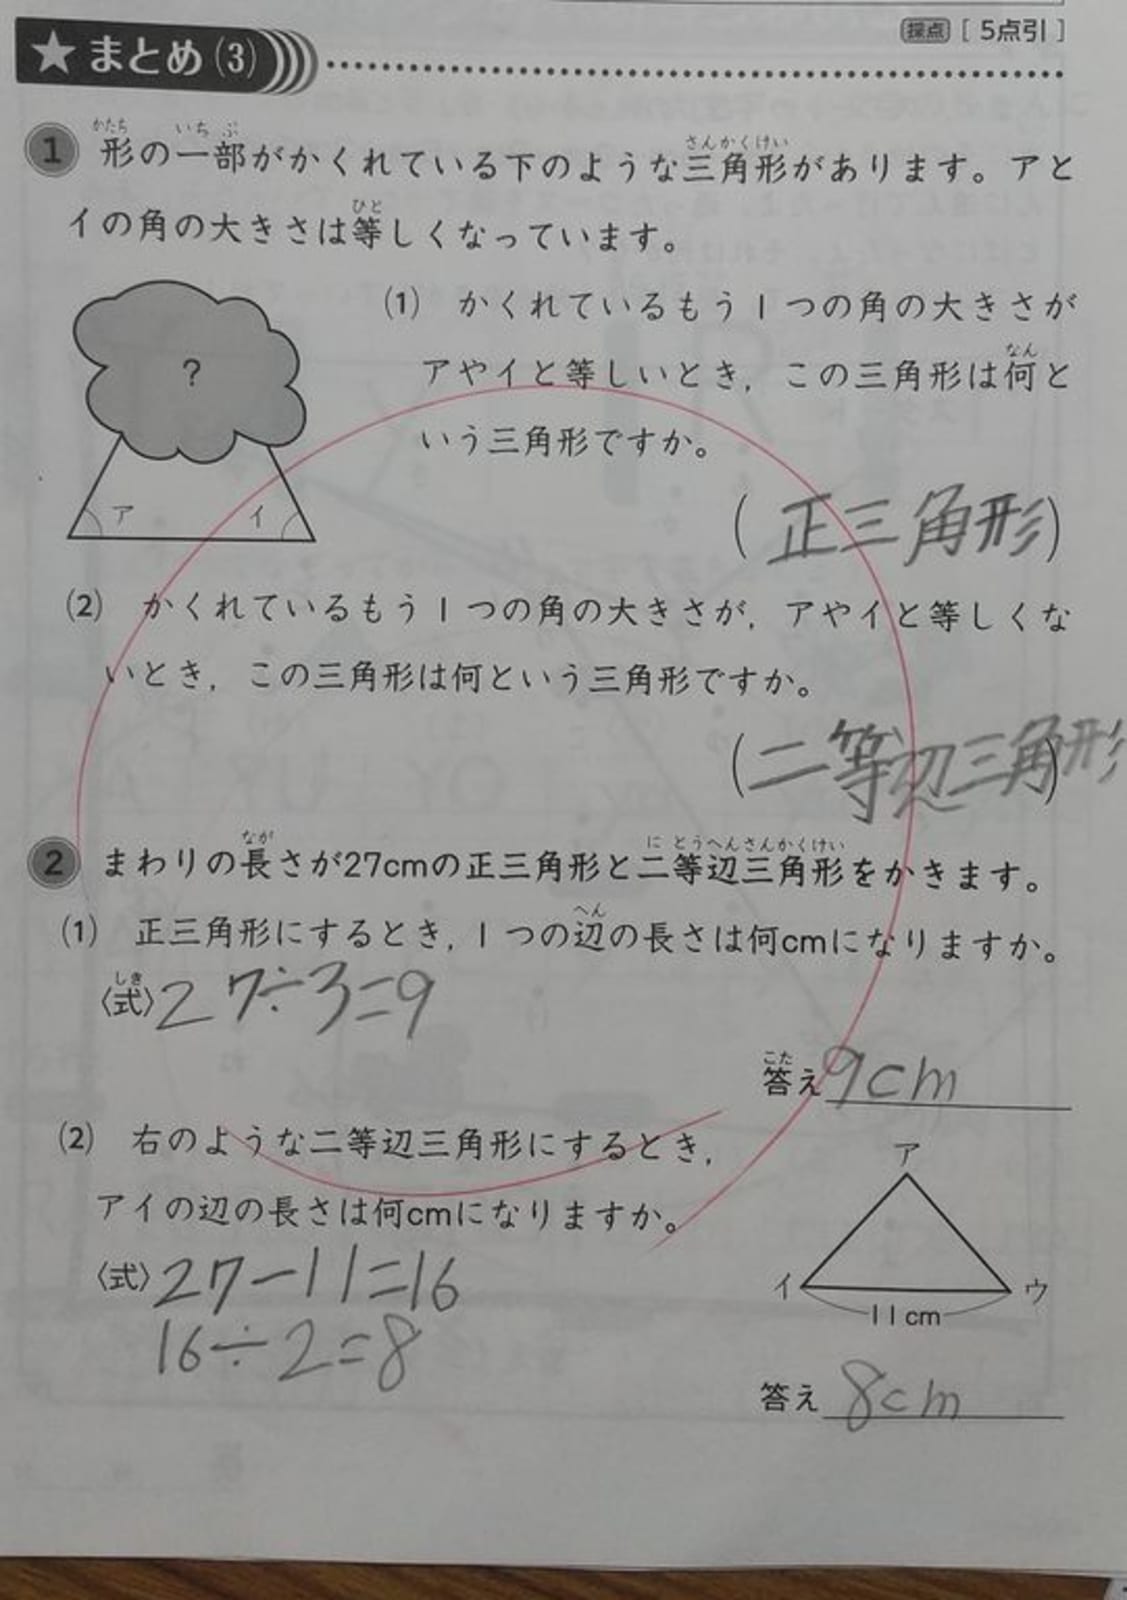 ★まとめ(3)
採点 [ 5点引 ]
1 形の一部がかくれている下のような三角形があります。アと
イの角の大きさは等しくなっています。
?
ア イ
(1) かくれているもう1つの角の大きさが
アやイと等しいとき，この三角形は何と
いう三角形ですか。
(正三角形)
(2) かくれているもう1つの角の大きさが，アやイと等しくな
いとき，この三角形は何という三角形ですか。
(二等辺三角形)
2 まわりの長さが27cmの正三角形と二等辺三角形をかきます。
(1) 正三角形にするとき，1つの辺の長さは何cmになりますか。
〈式〉27÷3=9
答え 9cm
(2) 右のような二等辺三角形にするとき，
アイの辺の長さは何cmになりますか。
〈式〉27-11=16
16÷2=8
ア
イ ウ
11cm
答え 8cm